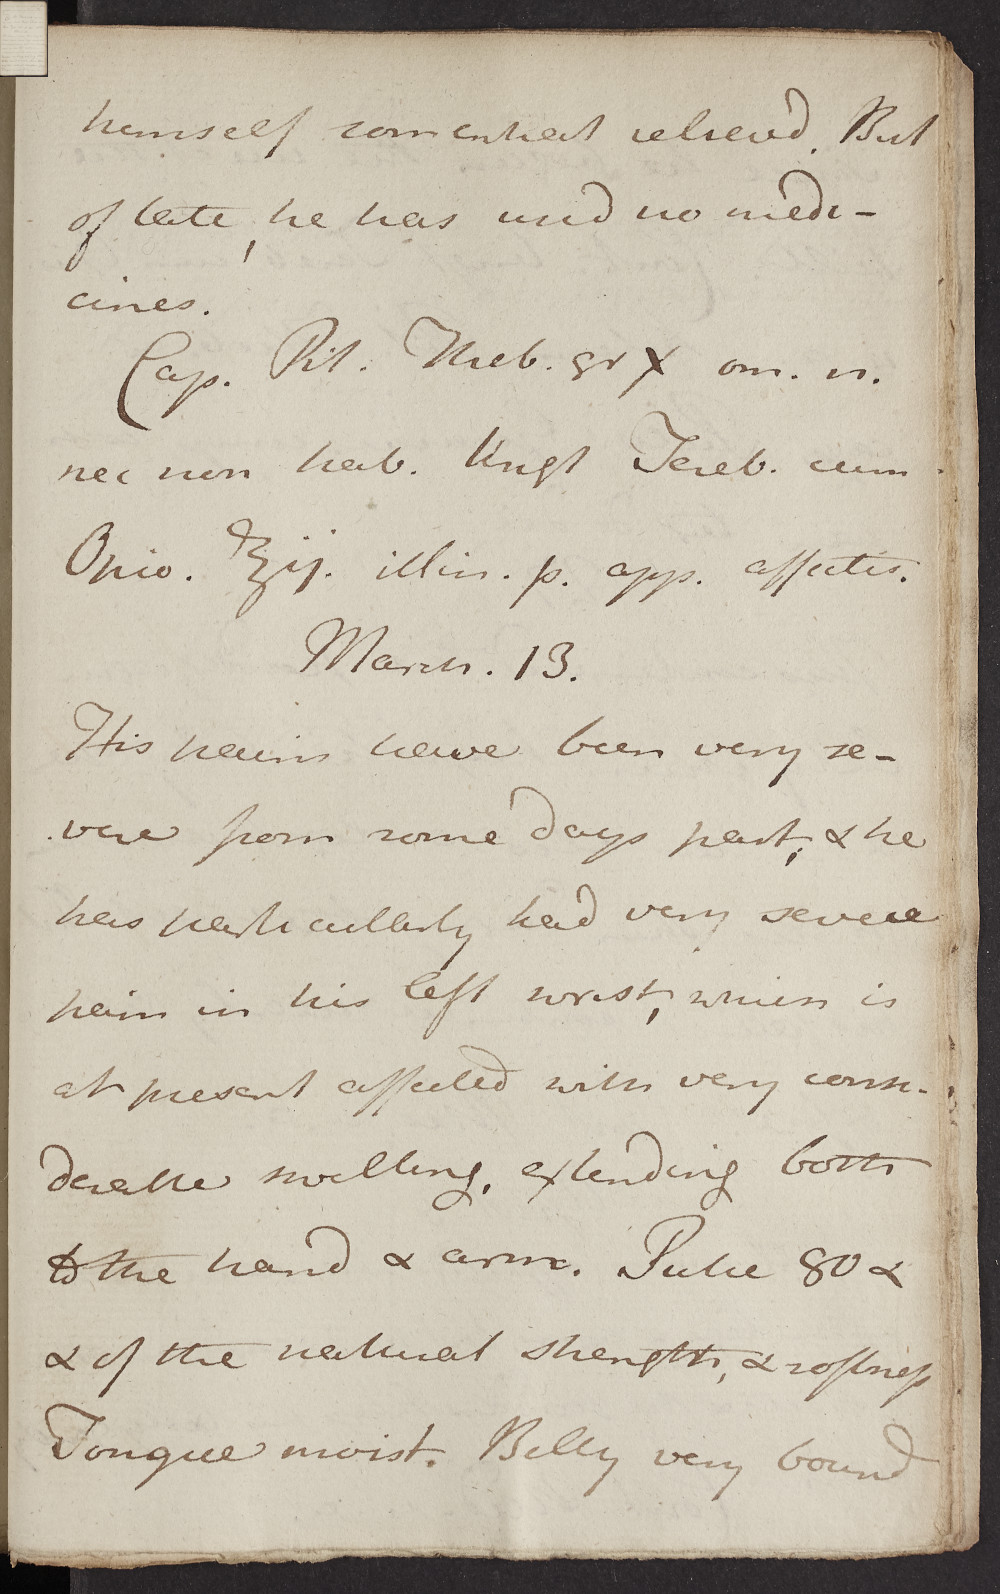 himself somewhat reliev'd. But
of late, he has used no medi-
cines.
Cap. Pil. Theb. gr X om. n.
nec non hab. Ungt Tereb. cum
Opio. ʒij. illin. p. app. affectis.
March. 13.
His pains have been very se-
vere from some days past, & he
has particullarly had very severe
pain in his left wrist, which is
at present affected with very consi-
derable swelling, extending both
to the hand & arm. Pulse 80 &
& of the natural strength, & softness
Tongue moist. Belly very bound